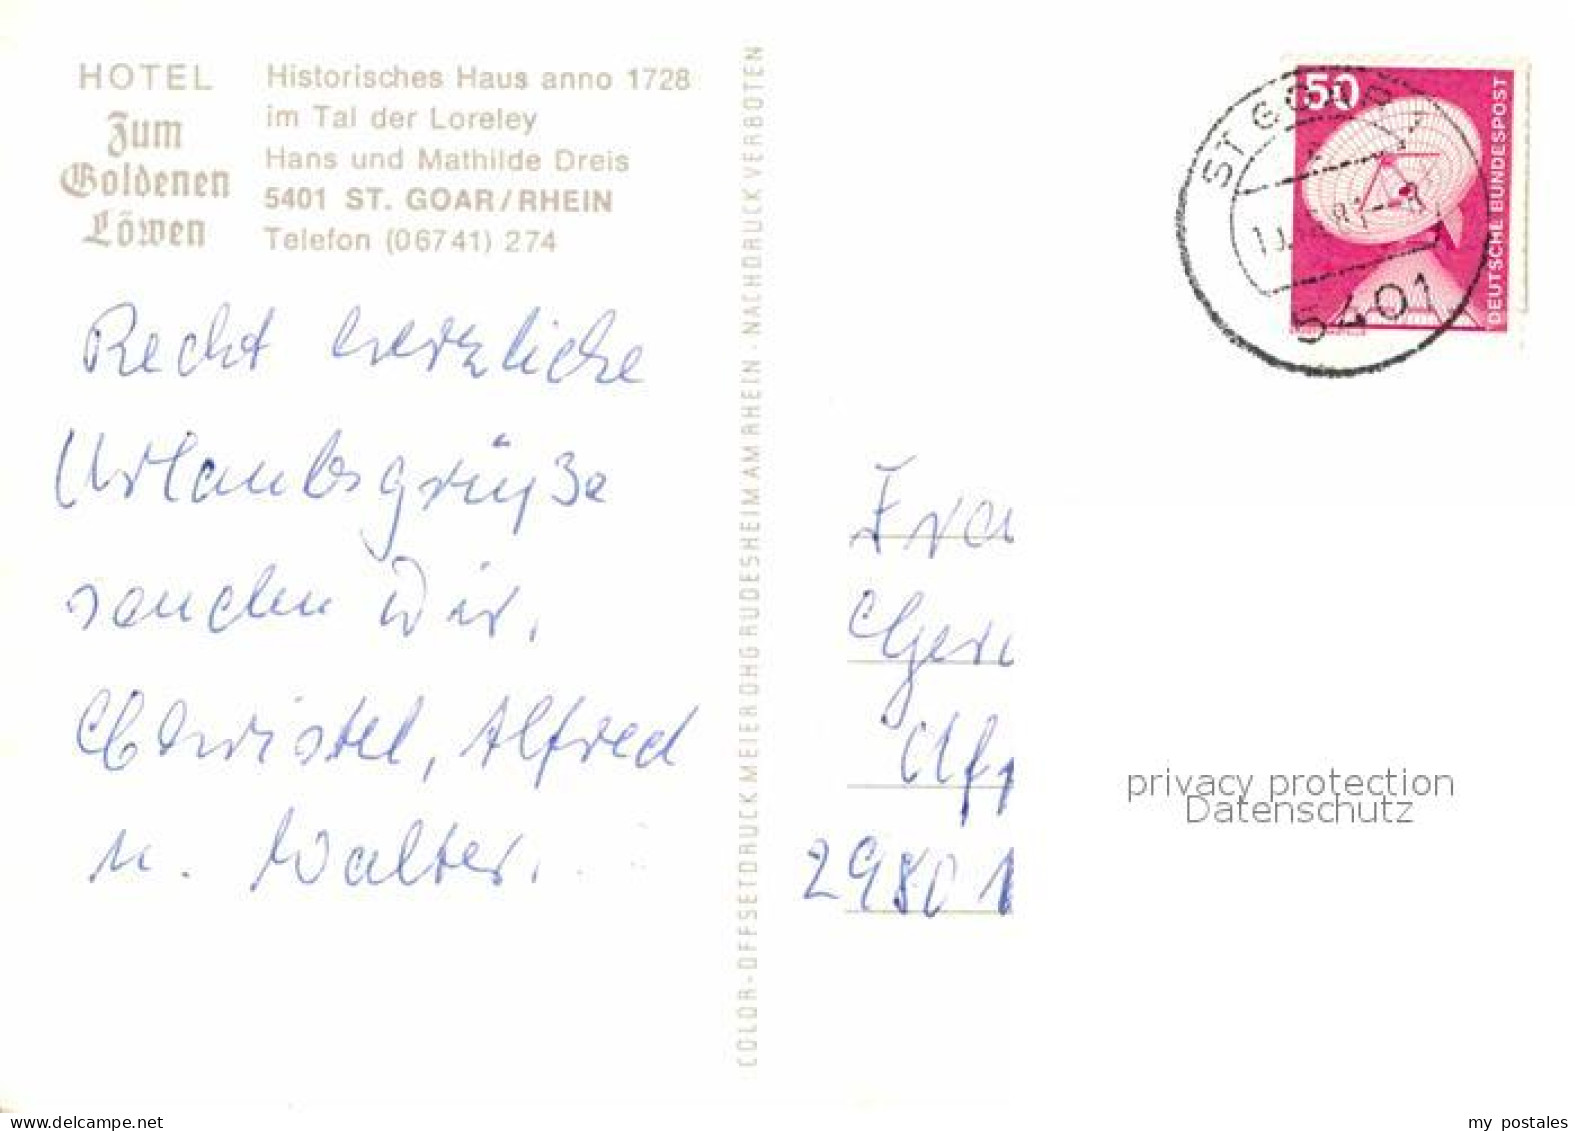 HOTEL
Zum
Goldenen
Löwen
Historisches Haus anno 1728
im Tal der Loreley
Hans und Mathilde Dreis
5401 ST. GOAR/RHEIN
Telefon (06741) 274
Recht herzliche
Urlaubsgrüße
senden wir,
Christel, Alfred
u. Walter.
COLOR-OFFSETDRUCK MEIER OHG RUDESHEIM AM RHEIN · NACHDRUCK VERBOTEN
50
DEUTSCHE BUNDESPOST
ST GOAR
5401
Fra
Ger
2980 1
privacy protection
Datenschutz
www.delcampe.net
my_postales